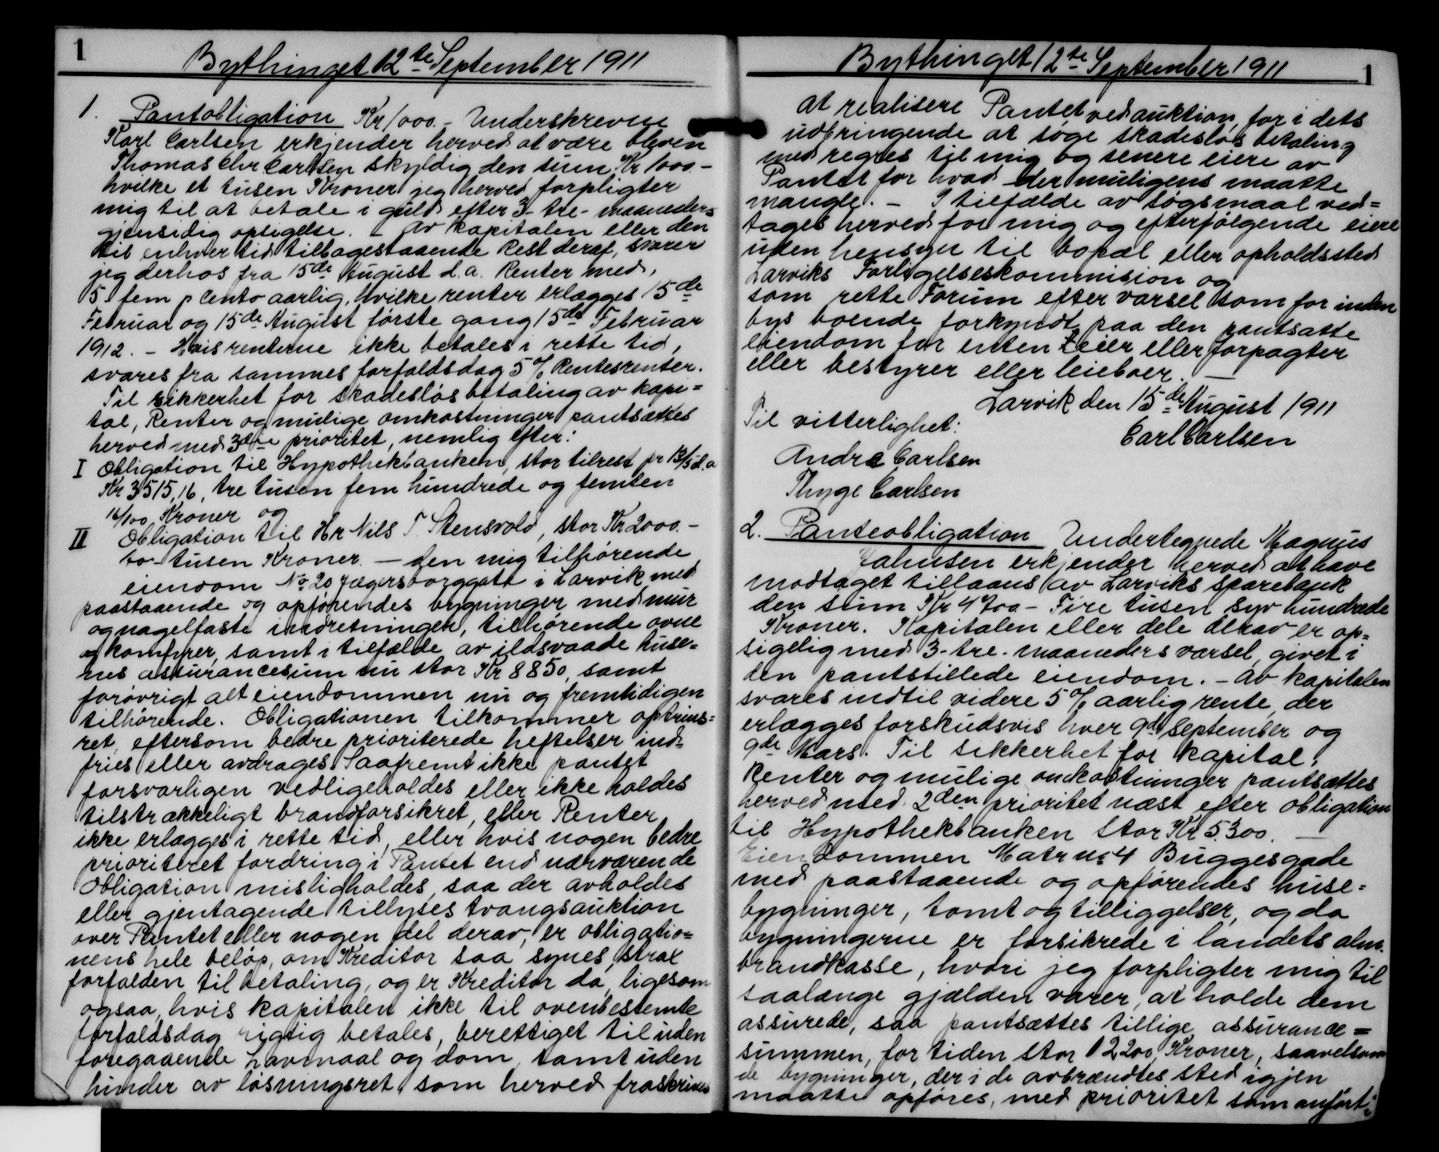 1
Bythinget 12te September 1911
1. Pantobligation Kr 1000.- Underskrevne
Karl Carlsen erkjender herved at være bleven
Thomas Chr Carlsen skyldig den sum Kr 1000.-
hvilke et tusen Kroner jeg herved forpligter
mig til at betale i guld efter 3- tre- maaneders
gjensidig opsigelse. - Av kapitalen eller den
til enhver tid tilbagestaaende Rest deraf, svarer
jeg derhos fra 15de August d.a. Renter med,
5 fem p Cento aarlig, hvilke renter erlægges 15de
Februar og 15de August første gang 15de Februar
1912. - Hvis renterne ikke betales i rette tid,
svares fra sammes forfaldsdag 5 % Rentesrenter.
Til sikkerhet for skadesløs betaling av kapi=
tal, Renter og mulige omkostninger pantsættes
herved med 3die prioritet, nemlig efter:
I Obligation til Hypothekbanken, stor tilrest pr 13/5 d.a
Kr 3515,16, tre tusen fem hundrede og femten
16/100 Kroner og
II Obligation til Hr Nils T. Stensvold, stor Kr 2000.-
to- tusen Kroner - den mig tilhørende
eiendom No 20 Jægersborggata i Larvik med
paastaaende og opførendes bygninger med mur
og nagelfaste indretninger, tilhørende ovne
og komfyrer, samt i tilfælde av ildsvaade huse-
nes assurancesum nu stor Kr 8850, samt
forøvrigt alt eiendommen nu og fremtidigen
tilhørende. Obligationen tilkommer optrins=
ret, eftersom bedre prioriterede heftelser ind-
fries eller avdrages. Saafremt ikke pantet
forsvarligen vedligeholdes eller ikke holdes
tilstrækkeligt brandforsikret, eller Renter
ikke erlægges i rette tid, eller hvis nogen bedre
prioriteret fordring i Pantet end nærværende
Obligation misligholdes, saa der avholdes
eller gjentagende tillyses tvangsauktion
over Pantet eller nogen del derav, er obligatio=
nens hele beløp, om Kreditor saa synes, strax
forfalden til betaling, og er Kreditor da, ligesom
ogsaa, hvis kapitalen ikke til ovenbestemte
forfaldsdag rigtig betales, berettiget til uden
foregaaende Lavmaal og dom, samt uden
hinder av løsningsret som herved fraskrives
Bythinget 12te September 1911
1
at realisere Pantet ved auktion, for i dets
udbringende at søge skadesløs betaling
med regres til mig og senere eiere av
Pantet for hvad der muligens maatte
mangle. - I tilfælde av søgsmaal ved=
tages herved for mig og efterfølgende eiere
uden hensyn til bopæl eller opholdssted
Larviks Forligelseskommision og
som rette Forum efter varsel som for inden
bys boende forkyndt paa den pantsatte
eiendom for enten Eeier eller forpagter
eller bestyrer eller leieboer. -
Larvik den 15de August 1911
Til vitterlighet:
Carl Carlsen
Andre Carlsen
Thyge Carlsen
2. Panteobligation Undertegnede Magnus
Jahnsen erkjender herved at have
modtaget tillaans av Larviks sparebank
den sum Kr 4700 - Fire tusen syv hundrede
Kroner. Kapitalen eller dele derav er op-
sigelig med 3- tre- maaneders varsel, givet i
den pantstillede eiendom. - Av kapitalen
svares indtil videre 5 % aarlig rente, der
erlægges forskudsvis hver 9de September og
9de Mars. Til sikkerhet for kapital,
Renter og mulige omkostninger pantsættes
herved med 2den prioritet næst efter obligation
til Hypothekbanken stor Kr 5300. -
Eiendommen Matr no 4 Buggesgade
med paastaaende og opførendes huse-
bygninger, tomt og tilliggelser, og da
bygningerne er forsikrede i landets alm.
brandkasse, hvori jeg forpligter mig til
saalænge gjælden varer, at holde dem
assurede, saa pantsættes tillige assurance=
summen, for tiden stor 12200 Kroner, saavelsom
de bygninger, der i de avbrændtes sted igjen
maatte opføres, med prioritet som anført i